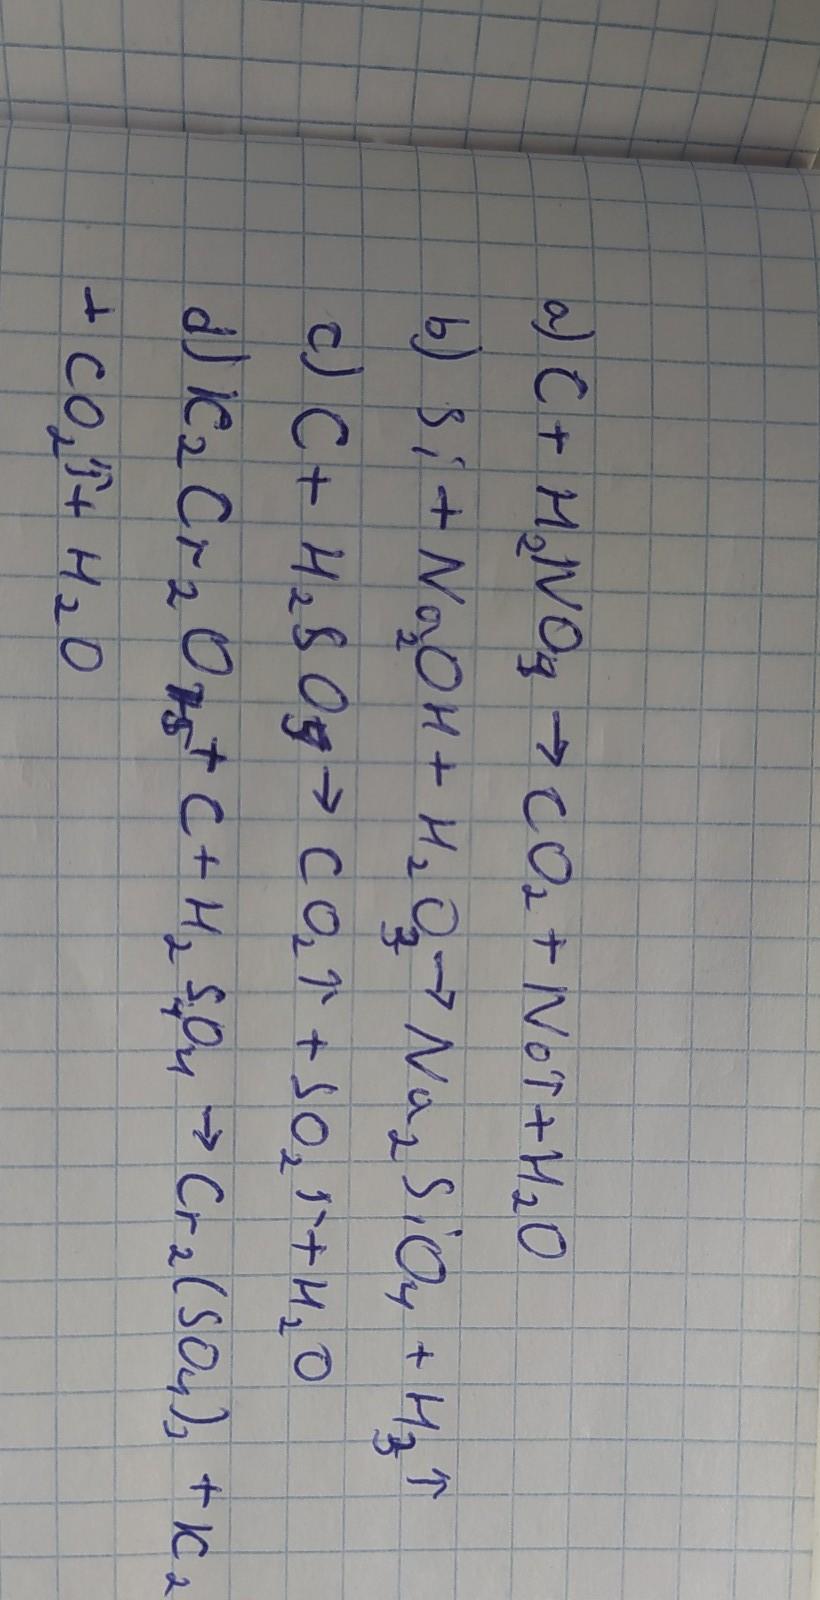 a) C + H₂NO₃ → CO₂ + NO↑ + H₂O
b) Si + Na₂OH + H₂O → Na₂SiO₄ + H₂↑
c) C + H₂SO₄ → CO₂↑ + SO₂↑ + H₂O
d) K₂Cr₂O₇ + C + H₂SO₄ → Cr₂(SO₄)₃ + K₂
+ CO₂↑ + H₂O